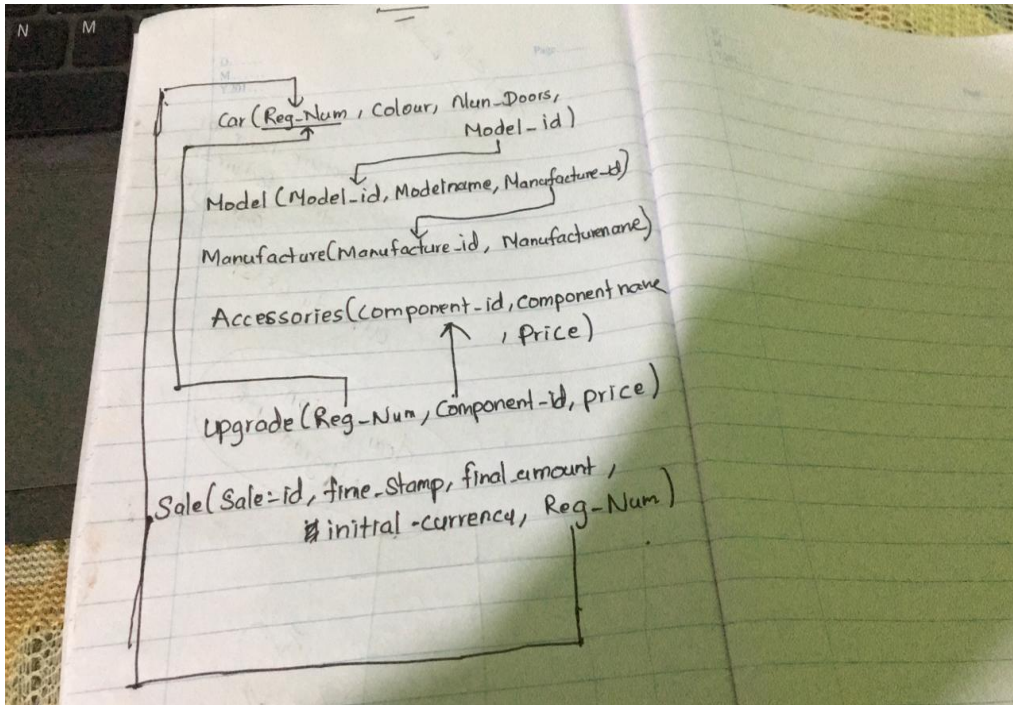 N M
Page
Car (Reg-Num, Colour, Num-Doors,
Model-id)
Model (Model-id, Modelname, Manufacture-id)
Manufacture(Manufacture-id, Manufacturename)
Accessories(component-id, component name
, Price)
upgrade(Reg-Num, Component-id, price)
Sale(Sale-id, time-Stamp, final-amount,
initial-currency, Reg-Num)